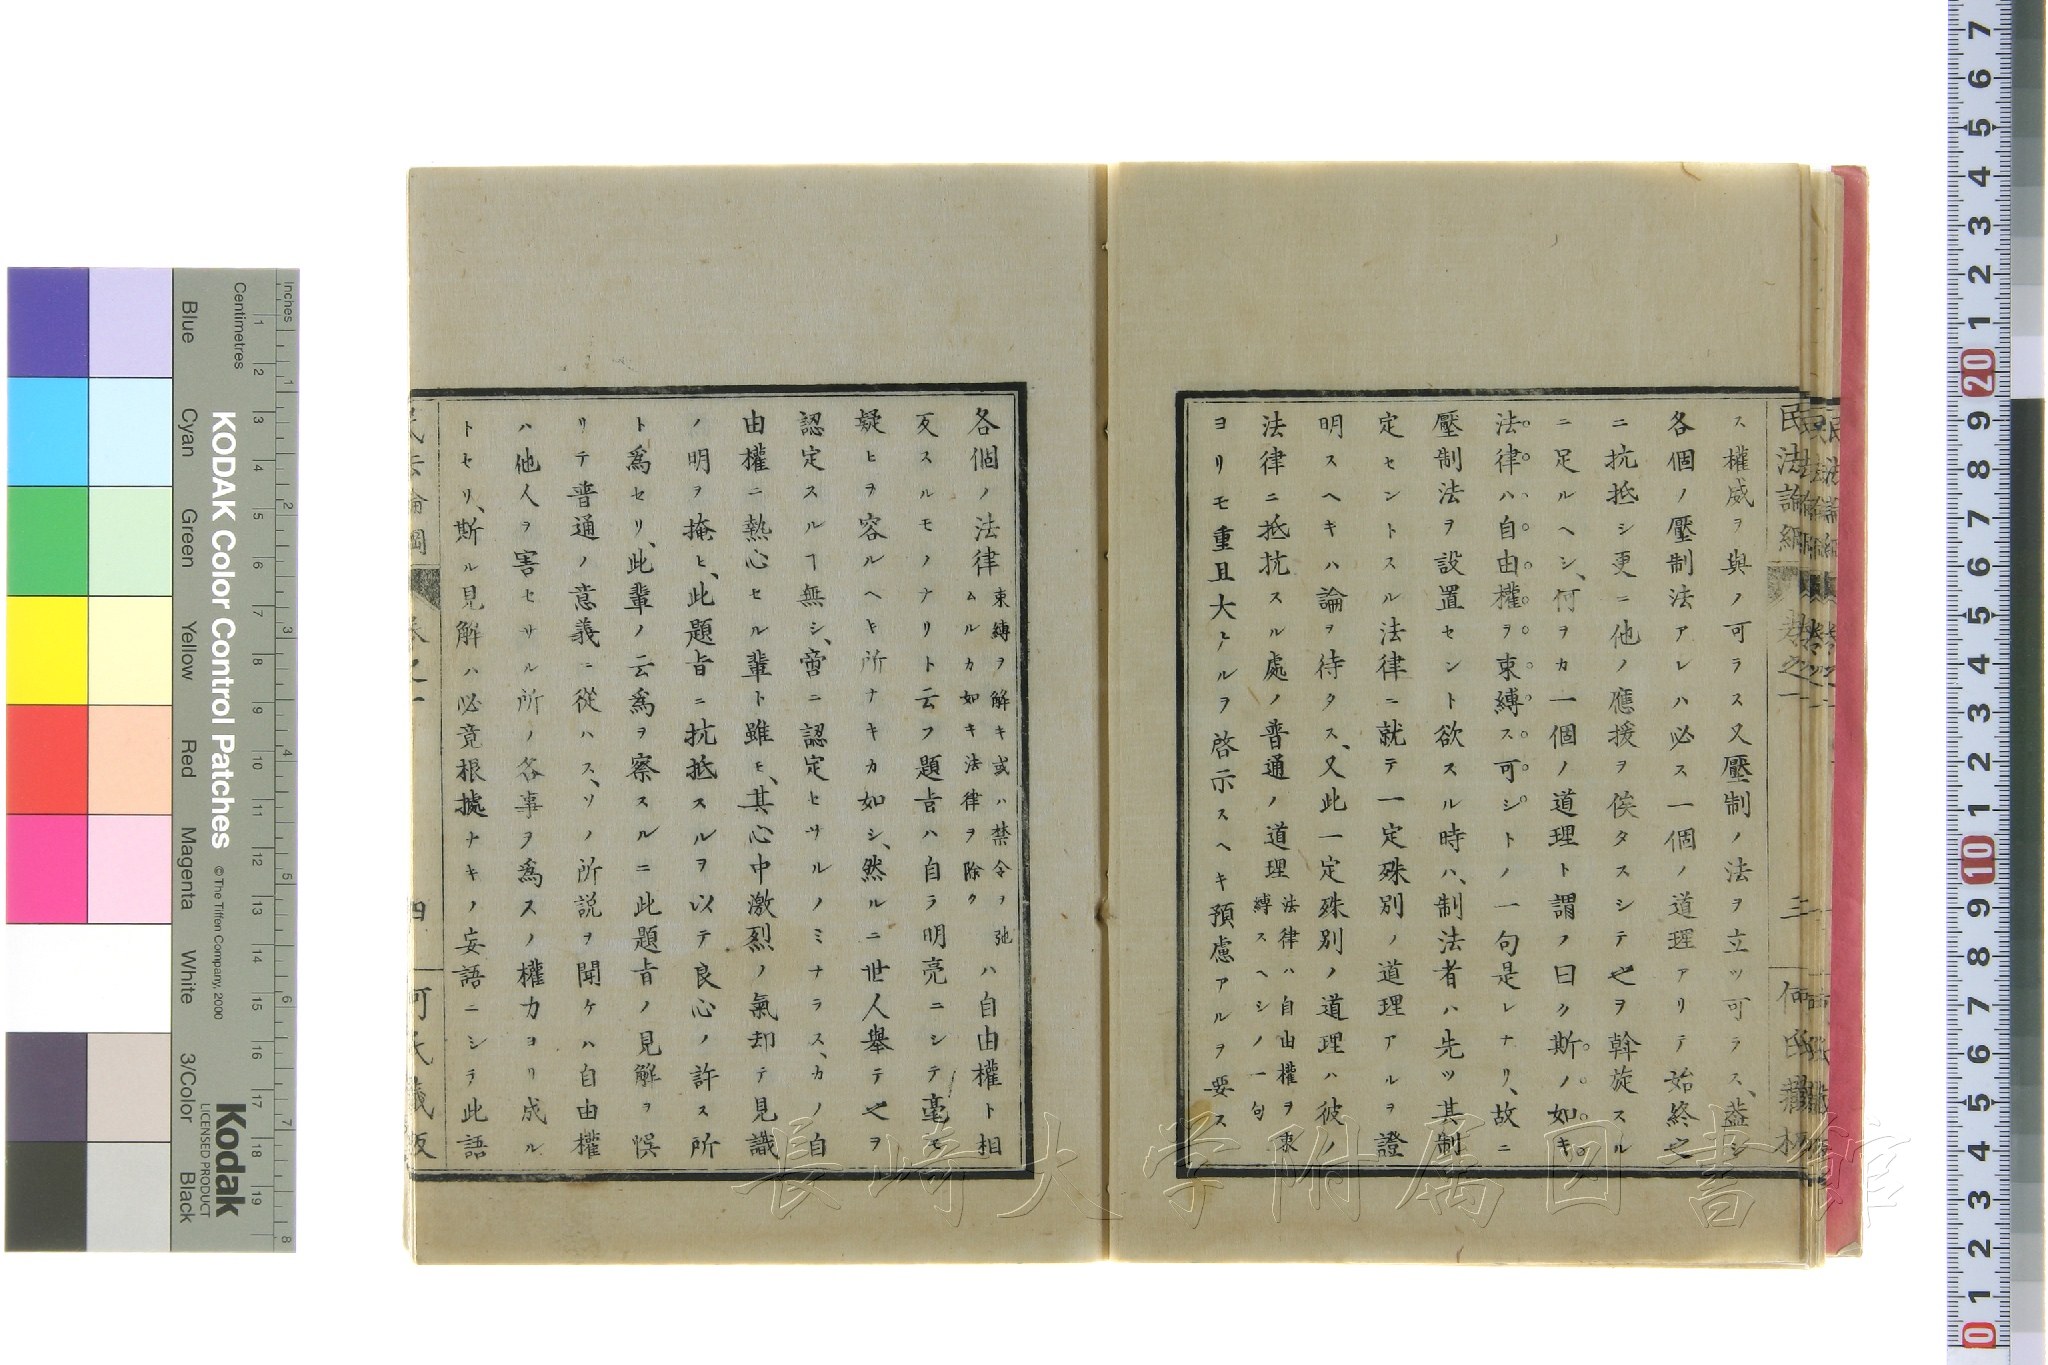 ス權威ヲ與ノ可ラス又壓制ノ法ヲ立ツ可ラス、蓋シ
各個ノ壓制法アレハ必ス一個ノ道理アリテ始終之
ニ抗抵シ更ニ他ノ應援ヲ俟タスシテ之ヲ斡旋スル
ニ足ルヘシ、何ヲカ一個ノ道理ト謂フ曰ク斯ノ如キ
法律ハ自由權ヲ束縛ス可シトノ一句是レナリ、故ニ
壓制法ヲ設置セント欲スル時ハ、制法者ハ先ツ其制
定セントスル法律ニ就テ一定殊別ノ道理アルヲ證
明スヘキハ論ヲ待タス、又此一定殊別ノ道理ハ彼ノ
法律ニ抵抗スル處ノ普通ノ道理法律ハ自由權ヲ束縛スヘシノ一句
ヨリモ重且大ナルヲ啓示スヘキ預慮アルヲ要ス
民法論綱
卷之一
三
何氏藏板
各個ノ法律束縛ヲ解キ或ハ禁令ヲ弛ムルカ如キ法律ヲ除クハ自由權ト相
反スルモノナリト云フ題旨ハ自ラ明亮ニシテ毫モ
疑ヒヲ容ルヘキ所ナキカ如シ、然ルニ世人舉テ之ヲ
認定スルヿ無シ、啻ニ認定セサルノミナラス、カノ自
由權ニ熱心セル輩ト雖モ、其心中激烈ノ氣却テ見識
ノ明ヲ掩ヒ、此題旨ニ抗抵スルヲ以テ良心ノ許ス所
ト爲セリ、此輩ノ云爲ヲ察スルニ此題旨ノ見解ヲ悞
リテ普通ノ意義ニ從ハス、ソノ所説ヲ聞ケハ自由權
ハ他人ヲ害セサル所ノ各事ヲ爲スノ權力ヨリ成ル
トセリ、斯ル見解ハ必竟根據ナキノ妄語ニシテ此語
四
KODAK Color Control Patches
© The Tiffen Company, 2000
Kodak
LICENSED PRODUCT
Inches
Centimetres
Blue
Cyan
Green
Yellow
Red
Magenta
White
3/Color
Black
長崎大学附属図書館